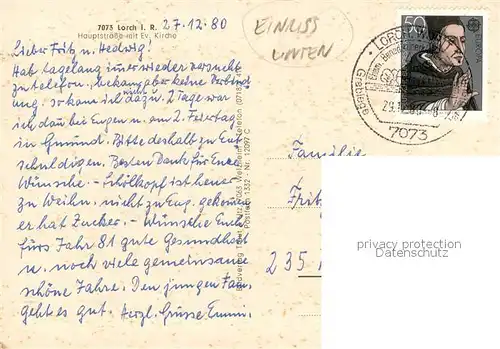 7073 Lorch i. R.
Hauptstraße mit Ev. Kirche
27.12.80
EINRISS
UNTEN
Lieber Fritz u. Hedwig!
Hab tagelang immer wieder versucht
zu telefon., bekam aber keine Verbind
ung, so kam ich dazu. 2 Tage war
ich dan bei Eugen u. am 2. Feiertag
in Gmünd. Bitte deshalb zu Ent
schuldigen. Besten Dank für Eure
Wünsche. – Schölkopf ist heuer
zu Weihn. nicht zu Eug. gekomm
er hat Zucker. – Wünsche Euch
fürs Jahr 81 gute Gesundheit
u. noch viele gemeinsame
schöne Jahre. Den jungen Fam.
geht es gut. Herzl. Grüsse Emm.
50
EUROPA
LORCH
7073
Familie
Fritz
235
privacy protection
Datenschutz